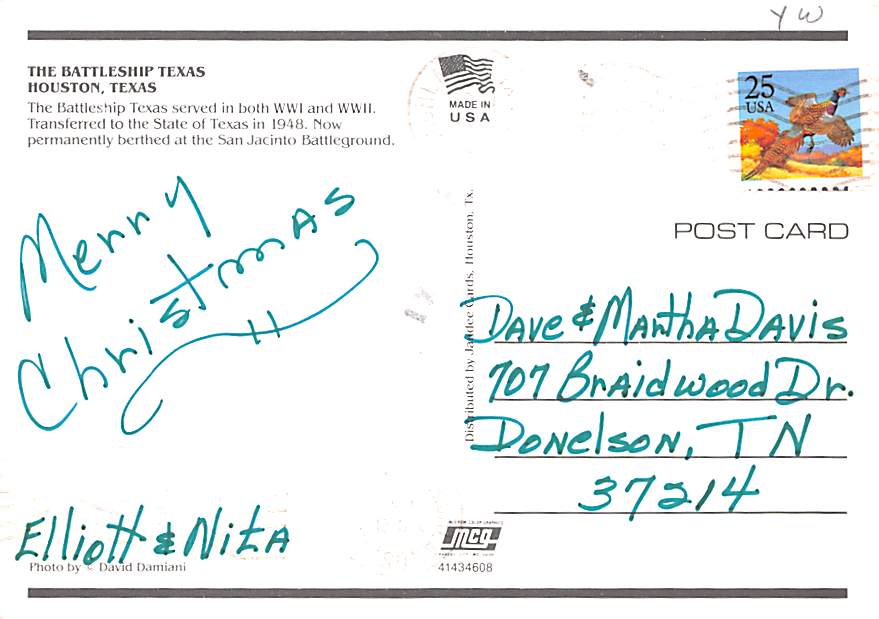 YW
THE BATTLESHIP TEXAS
HOUSTON, TEXAS
The Battleship Texas served in both WWI and WWII.
Transferred to the State of Texas in 1948. Now
permanently berthed at the San Jacinto Battleground.
MADE IN
USA
25
USA
POST CARD
Merry
Christmas
Elliott & Nita
Photo by © David Damiani
Distributed by Jandee Cards, Houston, Tx.
Dave & Martha Davis
707 Braidwood Dr.
Donelson, TN
37214
mcg
41434608